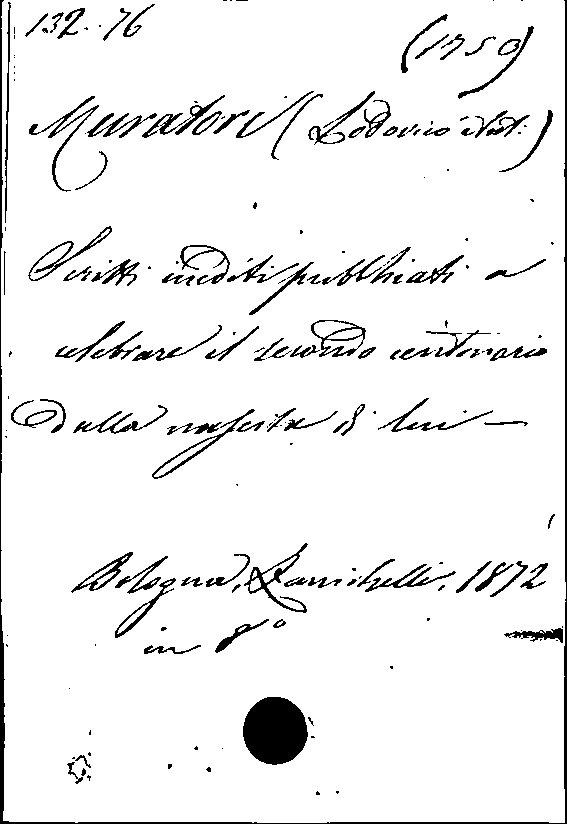 132. 76
(1750)
Muratori (Lodovico Ant:)
Scritti inediti pubblicati a
celebrare il secondo centenario
dalla nascita di lui —
Bologna, Zanichelli, 1872
in 8°